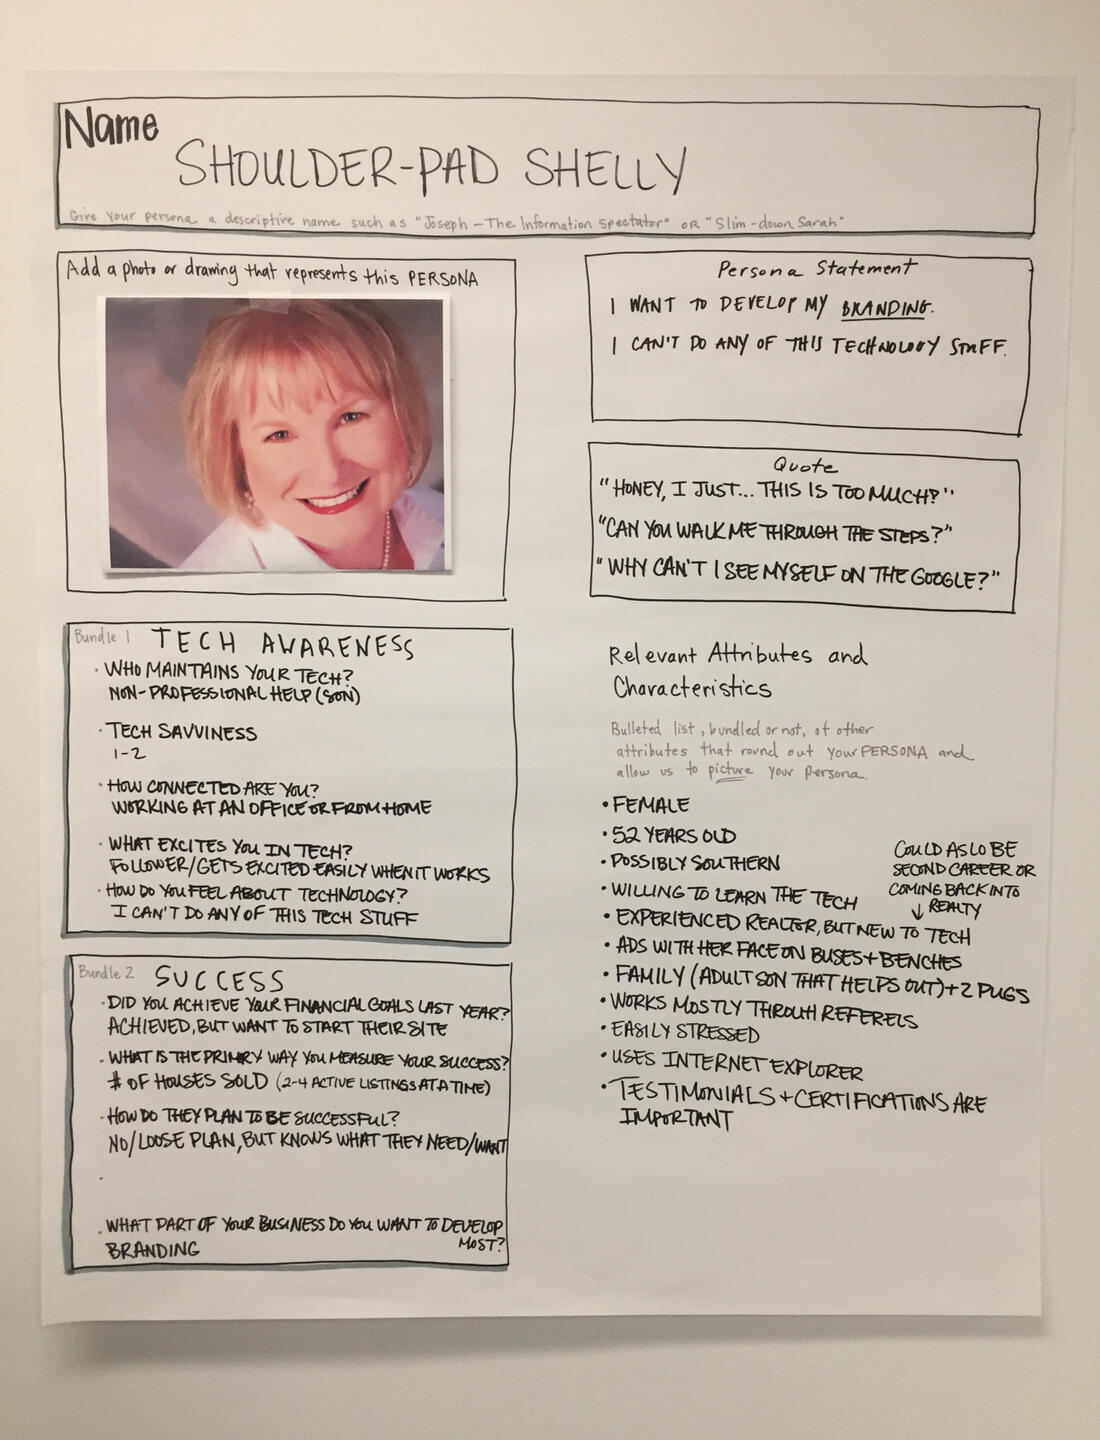 Name
SHOULDER-PAD SHELLY
Give your persona a descriptive name such as "Joseph - The Information Spectator" or "Slim-down Sarah"
Add a photo or drawing that represents this PERSONA
Persona Statement
I WANT TO DEVELOP MY BRANDING.
I CAN'T DO ANY OF THIS TECHNOLOGY STUFF.
Quote
"HONEY, I JUST... THIS IS TOO MUCH?"
"CAN YOU WALK ME THROUGH THE STEPS?"
"WHY CAN'T I SEE MYSELF ON THE GOOGLE?"
Bundle 1 TECH AWARENESS
• WHO MAINTAINS YOUR TECH?
NON-PROFESSIONAL HELP (SON)
• TECH SAVVINESS
1-2
• HOW CONNECTED ARE YOU?
WORKING AT AN OFFICE OR FROM HOME
• WHAT EXCITES YOU IN TECH?
FOLLOWER/GETS EXCITED EASILY WHEN IT WORKS
• HOW DO YOU FEEL ABOUT TECHNOLOGY?
I CAN'T DO ANY OF THIS TECH STUFF
Bundle 2 SUCCESS
• DID YOU ACHIEVE YOUR FINANCIAL GOALS LAST YEAR?
ACHIEVED, BUT WANT TO START THEIR SITE
• WHAT IS THE PRIMARY WAY YOU MEASURE YOUR SUCCESS?
# OF HOUSES SOLD (2-4 ACTIVE LISTINGS AT A TIME)
• HOW DO THEY PLAN TO BE SUCCESSFUL?
NO/LOOSE PLAN, BUT KNOWS WHAT THEY NEED/WANT
•
• WHAT PART OF YOUR BUSINESS DO YOU WANT TO DEVELOP
MOST?
BRANDING
Relevant Attributes and
Characteristics
Bulleted list, bundled or not, of other
attributes that round out your PERSONA and
allow us to picture your persona.
• FEMALE
• 52 YEARS OLD
• POSSIBLY SOUTHERN
• WILLING TO LEARN THE TECH
• EXPERIENCED REALTOR, BUT NEW TO TECH
COULD ASLO BE
SECOND CAREER OR
COMING BACK INTO
↓ REALTY
• ADS WITH HER FACE ON BUSES + BENCHES
• FAMILY (ADULT SON THAT HELPS OUT) + 2 PUGS
• WORKS MOSTLY THROUGH REFERELS
• EASILY STRESSED
• USES INTERNET EXPLORER
• TESTIMONIALS + CERTIFICATIONS ARE
IMPORTANT